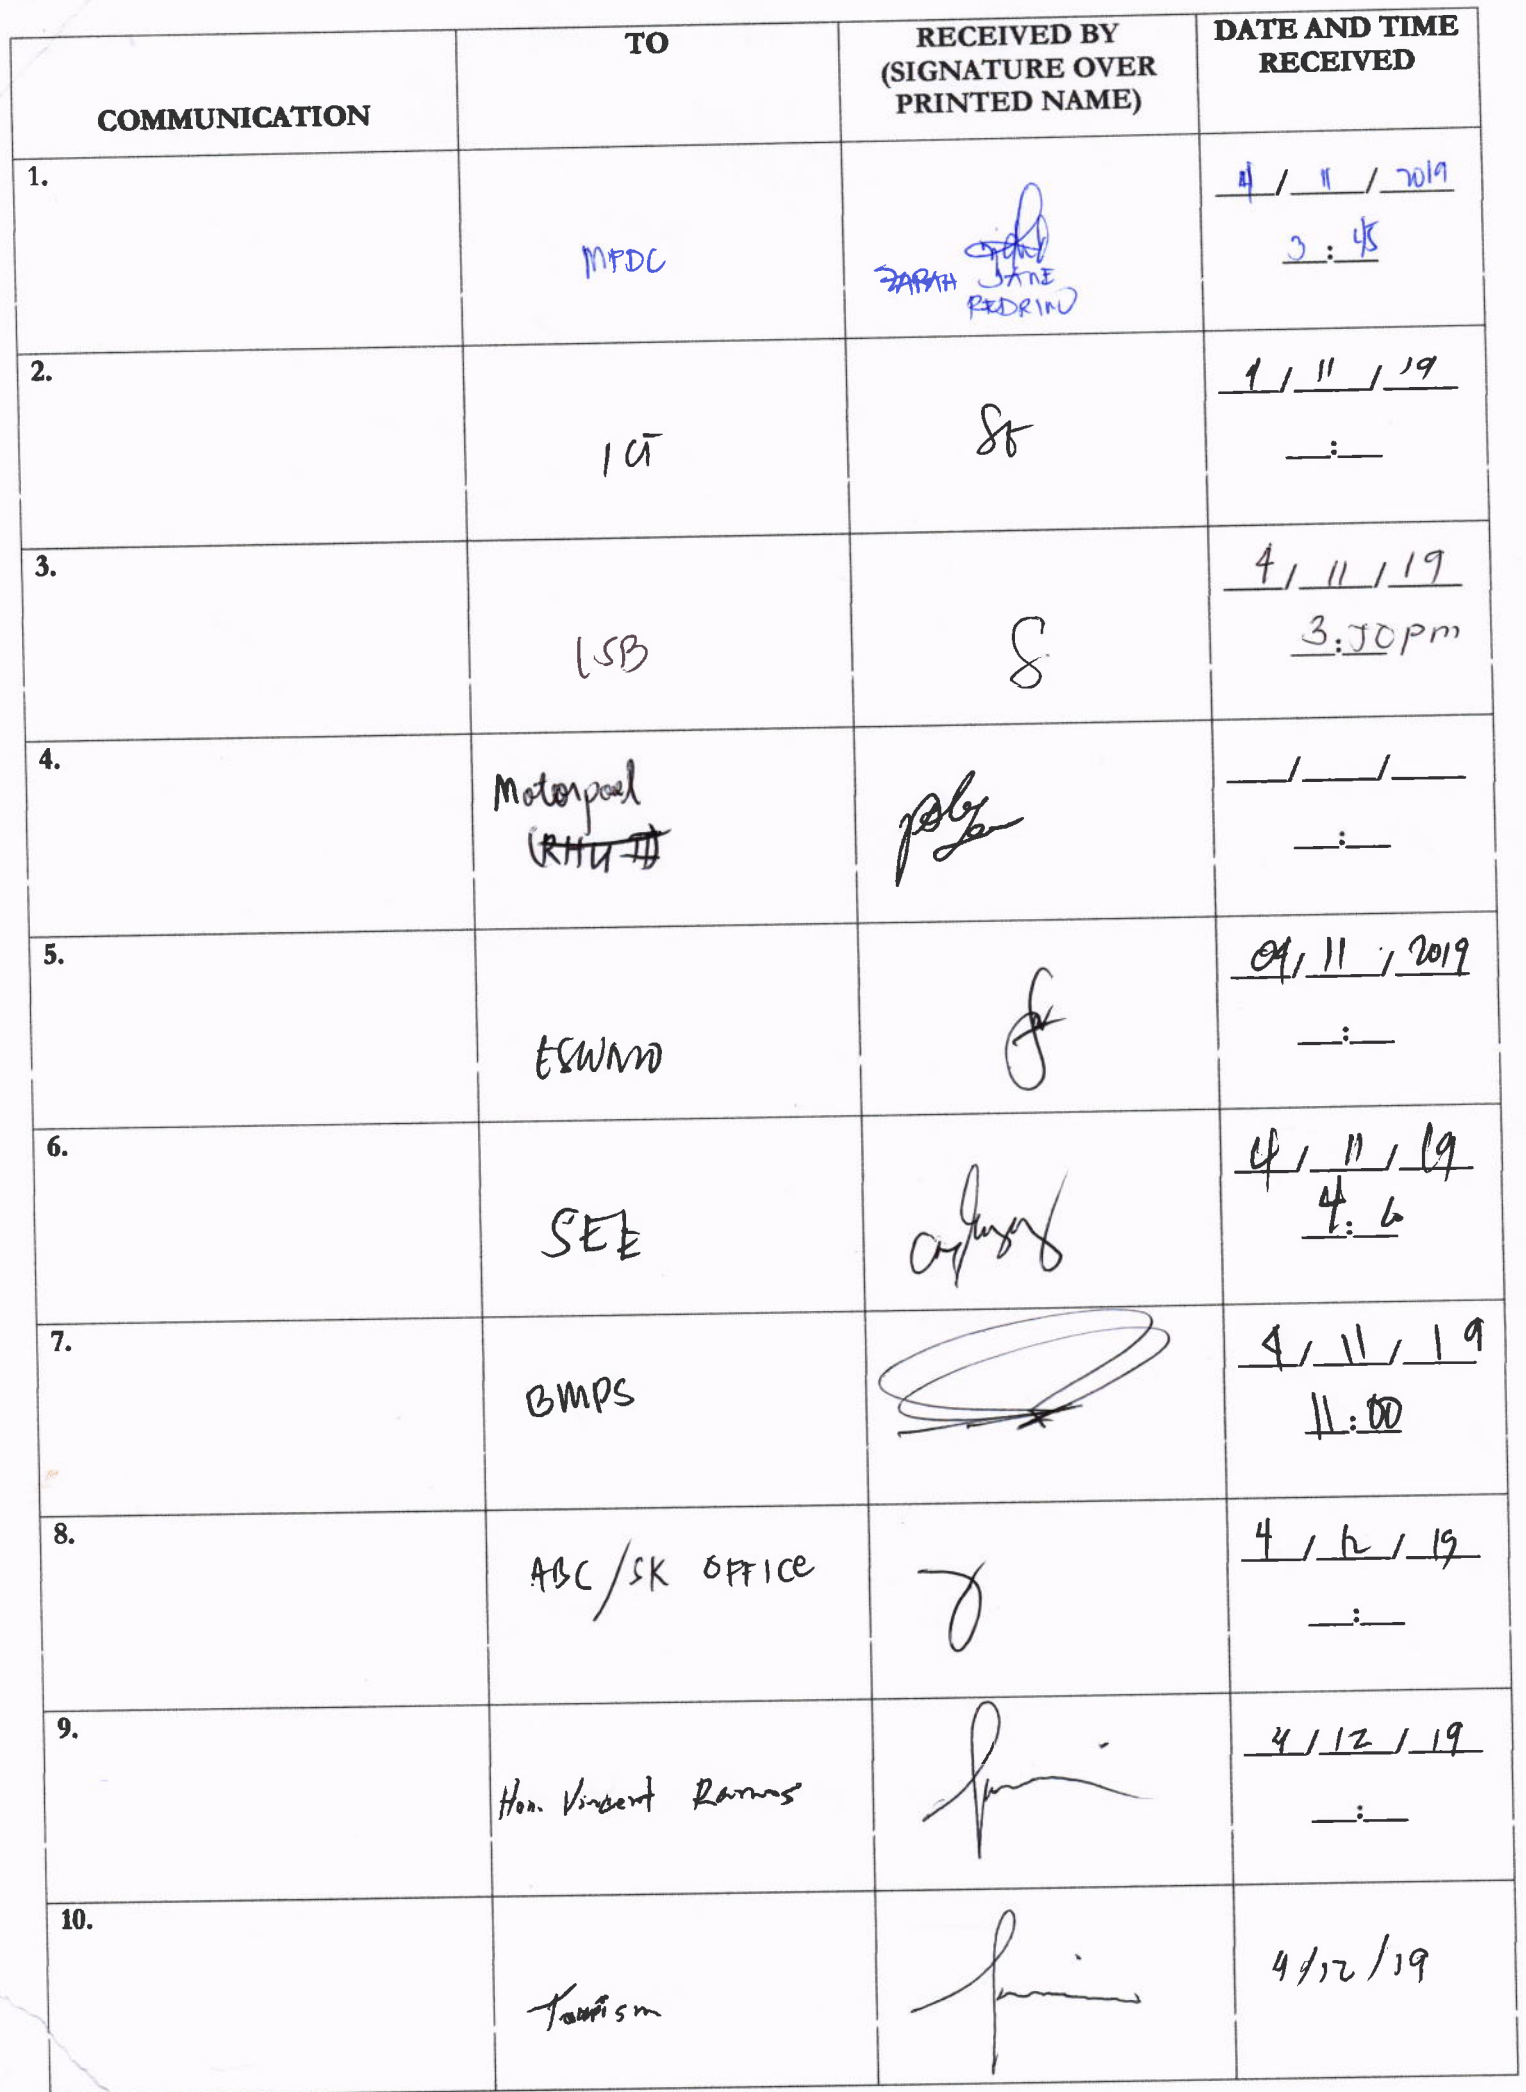 COMMUNICATION
TO
RECEIVED BY
(SIGNATURE OVER
PRINTED NAME)
DATE AND TIME
RECEIVED
1.
MPDC
ZARAH JANE
REDRINO
4/11/2019
3:45
2.
ICT
4/11/19
__:__
3.
LSB
4/11/19
3:30pm
4.
Motorpool
(RHU II)
___/___/___
__:__
5.
ESWMO
04/11/2019
__:__
6.
SEE
4/11/19
4:
7.
BMPS
4/11/19
11:00
8.
ABC/SK OFFICE
4/12/19
__:__
9.
Hon. Vincent Ramos
4/12/19
__:__
10.
Tourism
4/12/19